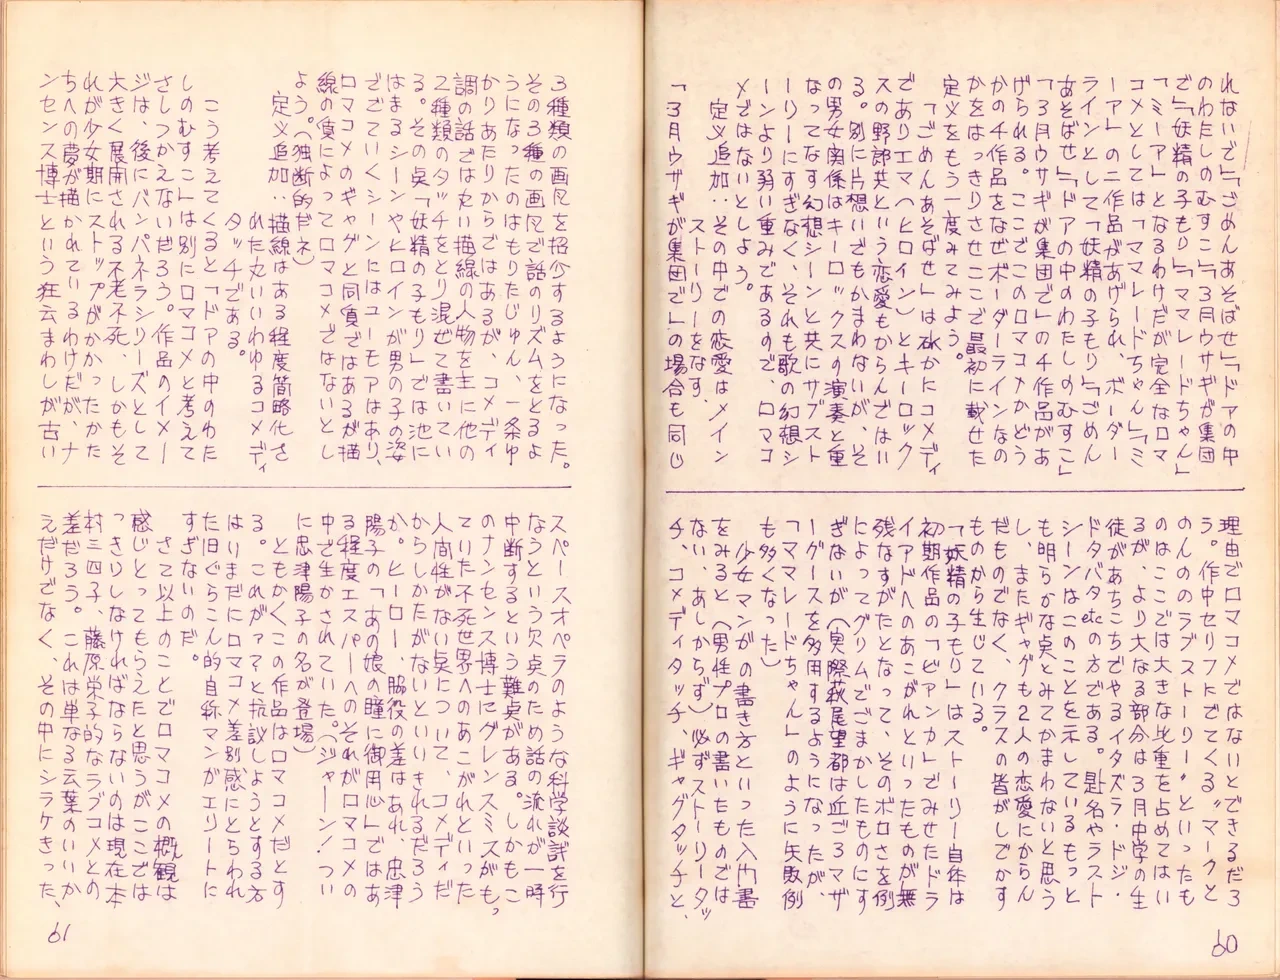 れないで」「ごめんあそばせ」「ドアの中
のわたしのむすこ」「3月ウサギが集団
で」「妖精の子もり」「ママレードちゃん」
「ミーア」となるわけだが完全なロマ
コメとしては「ママレードちゃん」「ミ
ーア」の二作品があげられ、ボーダー
ラインとして「妖精の子もり」「ごめん
あそばせ」「ドアの中のわたしのむすこ」
「3月ウサギが集団で」の4作品があ
げられる。ここでこのロマコメかどう
かの4作品をなぜボーダーラインなの
かをはっきりさせここで最初に載せた
定義をもう一度みてみよう。
「ごめんあそばせ」は確かにコメディ
でありエマ（ヒロイン）とキーロック
スの野郎共という恋愛もからんではい
る。別に片想いでもかまわないが、そ
の男女関係はキーロックスの演奏と重
なってなす幻想シーンと共にサブスト
ーリーにすぎなく、それも歌の幻想シ
ーンより弱い重みであるので、ロマコ
メではないとしよう。
定義追加：ストーリーをなす、
その中での恋愛はメイン
「3月ウサギが集団で」の場合も同じ
理由でロマコメではないとできるだろ
う。作中セリフにでてくる〝マークと
のんののラブストーリー〟といったも
のはここでは大きな比重を占めてはい
るが、より大なる部分は3月中学の生
徒があちこちでやるイタズラ・ドジ・
ドタバタetcの方である。題名やラスト
シーンはこのことを示しているもっと
も明らかな点とみてかまわないと思う
し、またギャグも2人の恋愛にからん
だものでなく、クラスの皆がしでかす
ものから生じている。
「妖精の子もり」はストーリー自体は
初期作品の「ビアンカ」でみせたドラ
イアドへのあこがれといったものが無
残なすがたとなって、そのボロさを例
によってグリムでごまかしたものにす
ぎないが（実際萩尾望都は近ごろマザ
ーグースを多用するようになったが、
「ママレードちゃん」のように失敗例
も多くなった）
少女マンガの書き方といった入門書
をみると（男性プロの書いたものでは
ない、あしからず）必ずストーリータッ
チ、コメディタッチ、ギャグタッチと、
60
3種類の画風を紹介するようになった。
その3種の画風で話のリズムをとるよ
うになったのはもりたじゅん、一条ゆ
かりあたりからではあるが、コメディ
調の話では丸い描線の人物を主に他の
2種類のタッチをとり混ぜて書いてい
る。その点「妖精の子もり」では池に
はまるシーンやヒロインが男の子の姿
ででていくシーンにはユーモアはあり、
ロマコメのギャグと同質ではあるが描
線の質によってロマコメではないとし
よう。（独断的だネ）
定義追加：描線はある程度簡略化さ
れた丸いいわゆるコメディ
タッチである。
こう考えてくると「ドアの中のわた
しのむすこ」は別にロマコメと考えて
さしつかえないだろう。作品のイメー
ジは、後にバンパネラシリーズとして
大きく展開される不老不死、しかもそ
れが少女期にストップがかかったかた
ちへの夢が描かれているわけだが、ナ
ンセンス博士という狂言まわしが古い
スペースオペラのような科学談議を行
なうという欠点のため話の流れが一時
中断するという難点がある。しかもこ
のナンセンス博士にグレンスミスがもっ
ていた不死世界へのあこがれといった
人間性がない点について、コメディだ
からしかたがないといいきれるだろう
か。ヒーロー、脇役の差はあれ、忠津
陽子の「あの娘の瞳に御用心」ではあ
る程度エスパーへのそれがロマコメの
中で生かされていた。（ジャーン！つい
に忠津陽子の名が登場）
ともかくこの作品はロマコメだとす
る。これがァァと抗議しようとする方
はいまだにロマコメ差別感にとらわれ
た旧ぐらこん的自称マンガエリートに
すぎないのだ。
さて以上のことでロマコメの概観は
感じとってもらえたと思うがここでは
っきりしなければならないのは現在本
村三四子、藤原栄子的なラブコメとの
差だろう。これは単なる言葉のいいか
えだけでなく、その中にシラケきった、
61